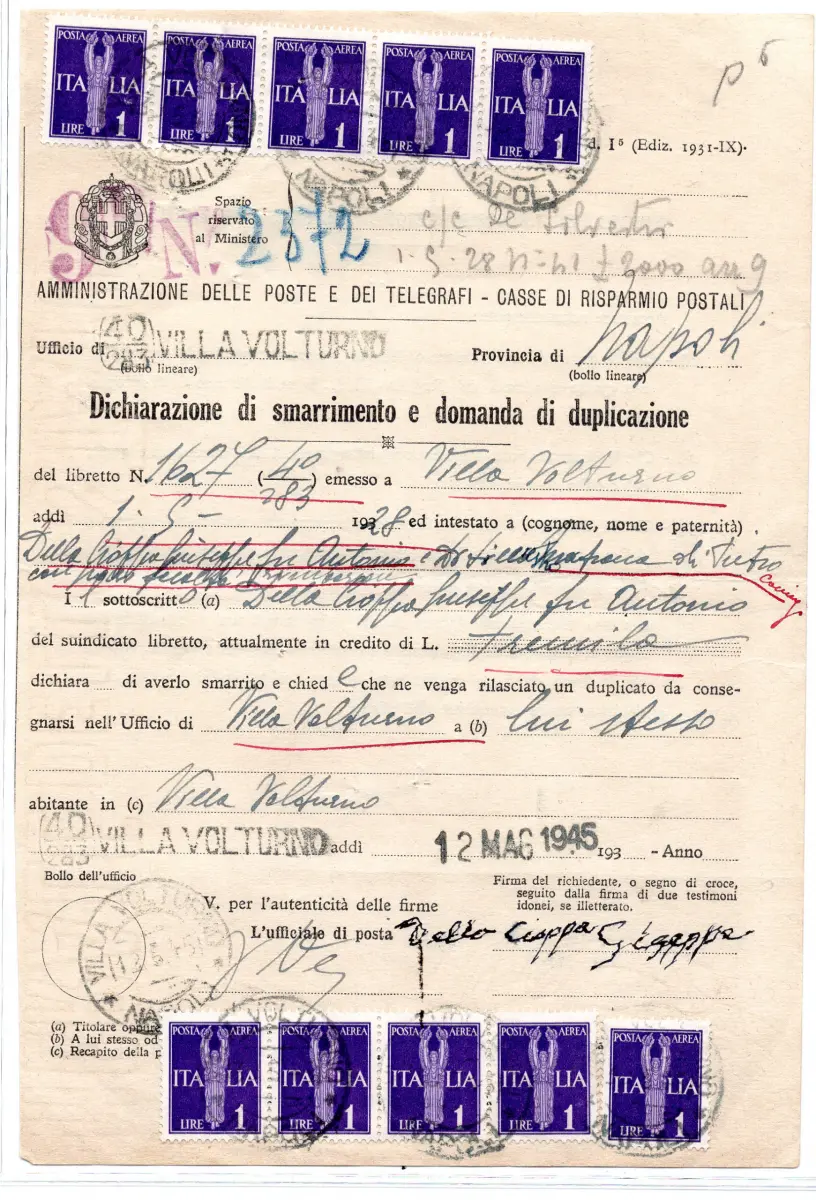 POSTA AEREA ITALIA LIRE 1
POSTA AEREA ITALIA LIRE 1
POSTA AEREA ITALIA LIRE 1
POSTA AEREA ITALIA LIRE 1
POSTA AEREA ITALIA LIRE 1
NAPOLI NAPOLI NAPOLI
d. I⁵ (Ediz. 1931-IX).
P 5
Spazio
riservato
al Ministero
9 N. 2372
c/c De Silvestri
AMMINISTRAZIONE DELLE POSTE E DEI TELEGRAFI - CASSE DI RISPARMIO POSTALI
Ufficio di (40/283) VILLA VOLTURNO Provincia di Napoli
(bollo lineare) (bollo lineare)
Dichiarazione di smarrimento e domanda di duplicazione
del libretto N. 1627 (40/283) emesso a Villa Volturno
addì 1-5- 1928 ed intestato a (cognome, nome e paternità)
Della Cioppa Giuseppe fu Antonio e di Pietro
I sottoscritto (a) Della Cioppa Giuseppe fu Antonio
del suindicato libretto, attualmente in credito di L. Tremila
dichiara di averlo smarrito e chied e che ne venga rilasciato un duplicato da conse-
gnarsi nell'Ufficio di Villa Volturno a (b) lui stesso
abitante in (c) Villa Volturno
(40/283) VILLA VOLTURNO addì 12 MAG 1945 193 - Anno
Bollo dell'ufficio
Firma del richiedente, o segno di croce,
seguito dalla firma di due testimoni
idonei, se illetterato.
V. per l'autenticità delle firme
L'ufficiale di posta Della Cioppa Giuseppe
VILLA VOLTURNO NAPOLI
(a) Titolare oppure
(b) A lui stesso od
(c) Recapito della p
POSTA AEREA ITALIA LIRE 1
POSTA AEREA ITALIA LIRE 1
POSTA AEREA ITALIA LIRE 1
POSTA AEREA ITALIA LIRE 1
POSTA AEREA ITALIA LIRE 1